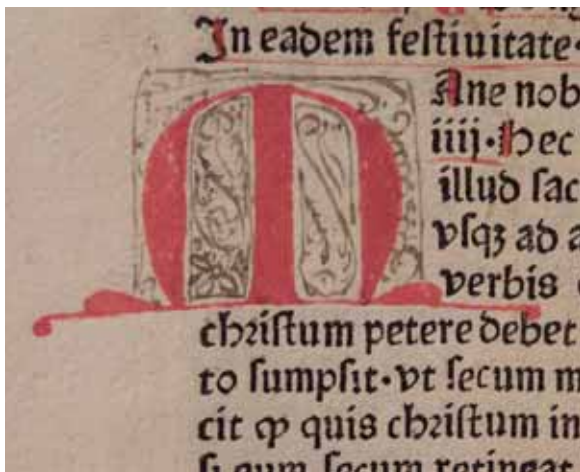 In eadem feſtiuitate·
M Ane nob
iiij·Hec
illud ſac
vſqꝫ ad a
verbis
chriſtum petere debet
to ſumpſit·vt ſecum m
cit ꝙ quis chriſtum in
ſi eum ſecum retineat